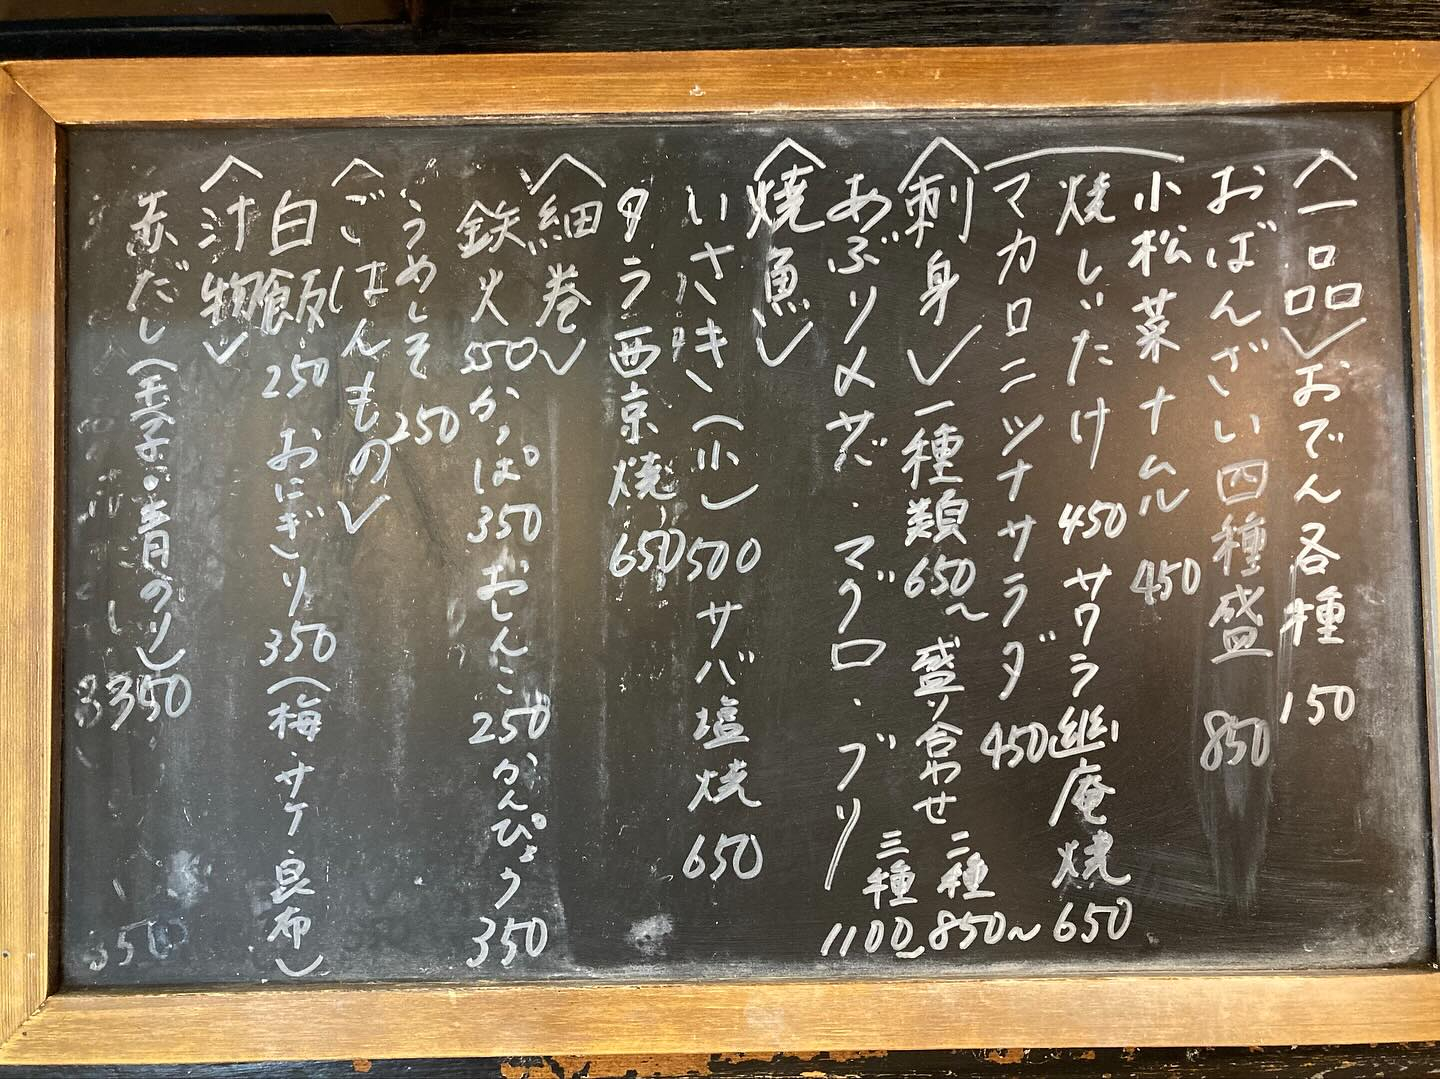 〈一品〉おでん各種 150
おばんざい四種盛 850
小松菜ナムル 450
焼しいたけ 450 サワラ幽庵焼 650
マカロニツナサラダ 450
〈刺身〉一種類650〜 盛り合わせ 二種 850〜 三種 1100〜
あぶりメサバ・マグロ・ブリ
〈焼魚〉
いさき(小)500 サバ塩焼 650
タラ西京焼 650
〈細巻〉
鉄火550 かっぱ350 おしんこ250 かんぴょう350
うめしそ 250
〈ごはんもの〉
白飯 250 おにぎり350(梅・サケ・昆布)
〈汁物〉
赤だし(玉子・青のり)350